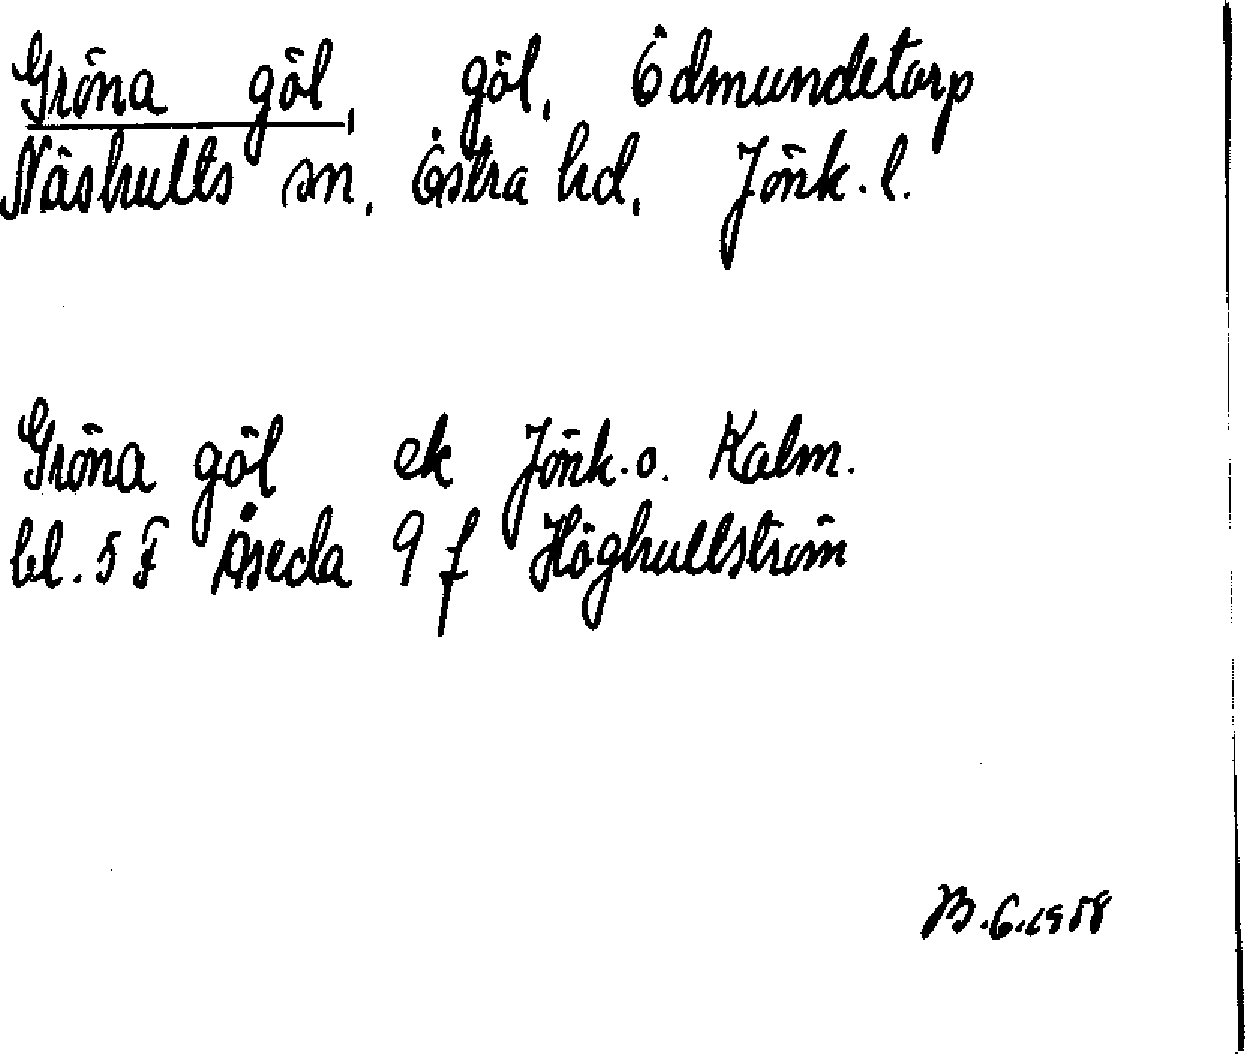 Gröna göl, göl, Ödmundetorp
Näshults sn, Östra hd, Jönk. l.
Gröna göl ek Jönk. o. Kalm.
bl. 5 F Åseda 9 f Höghultström
B.6.1958